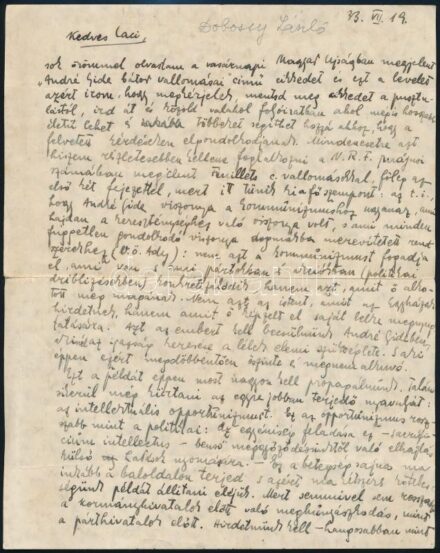 Dobossy László
33. VII. 19.
Kedves Laci,
sok örömmel olvastam a vasárnapi Magyar Ujságban megjelent
„André Gide bátor vallomásai" című cikkedet és ezt a levelet
azért írom, hogy megkérjelek, mentsd meg cikkedet a pusztu-
lástól, írd át és közöld valahol folyóiratban ahol mégis hosszabb
életű lehet és többeket segíthet hozzá ahhoz, hogy a
felvetett kérdéseken elgondolkodjanak. Mindenesetre azt
hiszem részletesebben kellene foglalkozni a N.R.F.
számában megjelent feuillets c. vallomásokkal, főleg az
első két fejezettel, mert itt tűnik ki a főszempont: az t.i.,
hogy André Gide viszonya a kommunizmushoz ugyanaz, ami
hajdan a kereszténységhez való viszonya volt, s ami minden
független gondolkodó viszonya dogmákba merevített rend-
szerekhez (v.ö. Ady): nem azt a kommunizmust fogadja
el, ami van s ami pártokban s arcokban (politikai
hanem azt, amit ő alko-
tott meg magának. Nem azt az istent, amit az Egyházak
hirdetnek, hanem amit ő képzelt el saját lelke megnyug-
tatására. Azt az embert kell becsülnünk André Gidben,
az igazság keresése a lélek elemi szükséglete. S aki
éppen ezért megdöbbentően őszinte s megnemalkuvó.
Ezt a példát éppen most nagyon kell propagálnunk, talán
sikerül meg kúrálni az egyre jobban terjedő nyavalyát:
az intellektuális opportunizmust. Ez az opportunizmus rosz-
szabb mint a politikai: az egyéniség feladása ez – sacrifi-
cium intellectus – benső meggyőződésünktől való elhajlás
külső hatások nyomására. Ez a betegség sajnos ma
inkább a baloldalon terjed s azért ma
ségünk példát állítani eléjük. Mert semmivel sem rosszabb
a kormányhivatalok előtt való meghunyászkodás, mint
a párthivatalok előtt. Hirdetnünk kell – hangosabban mint